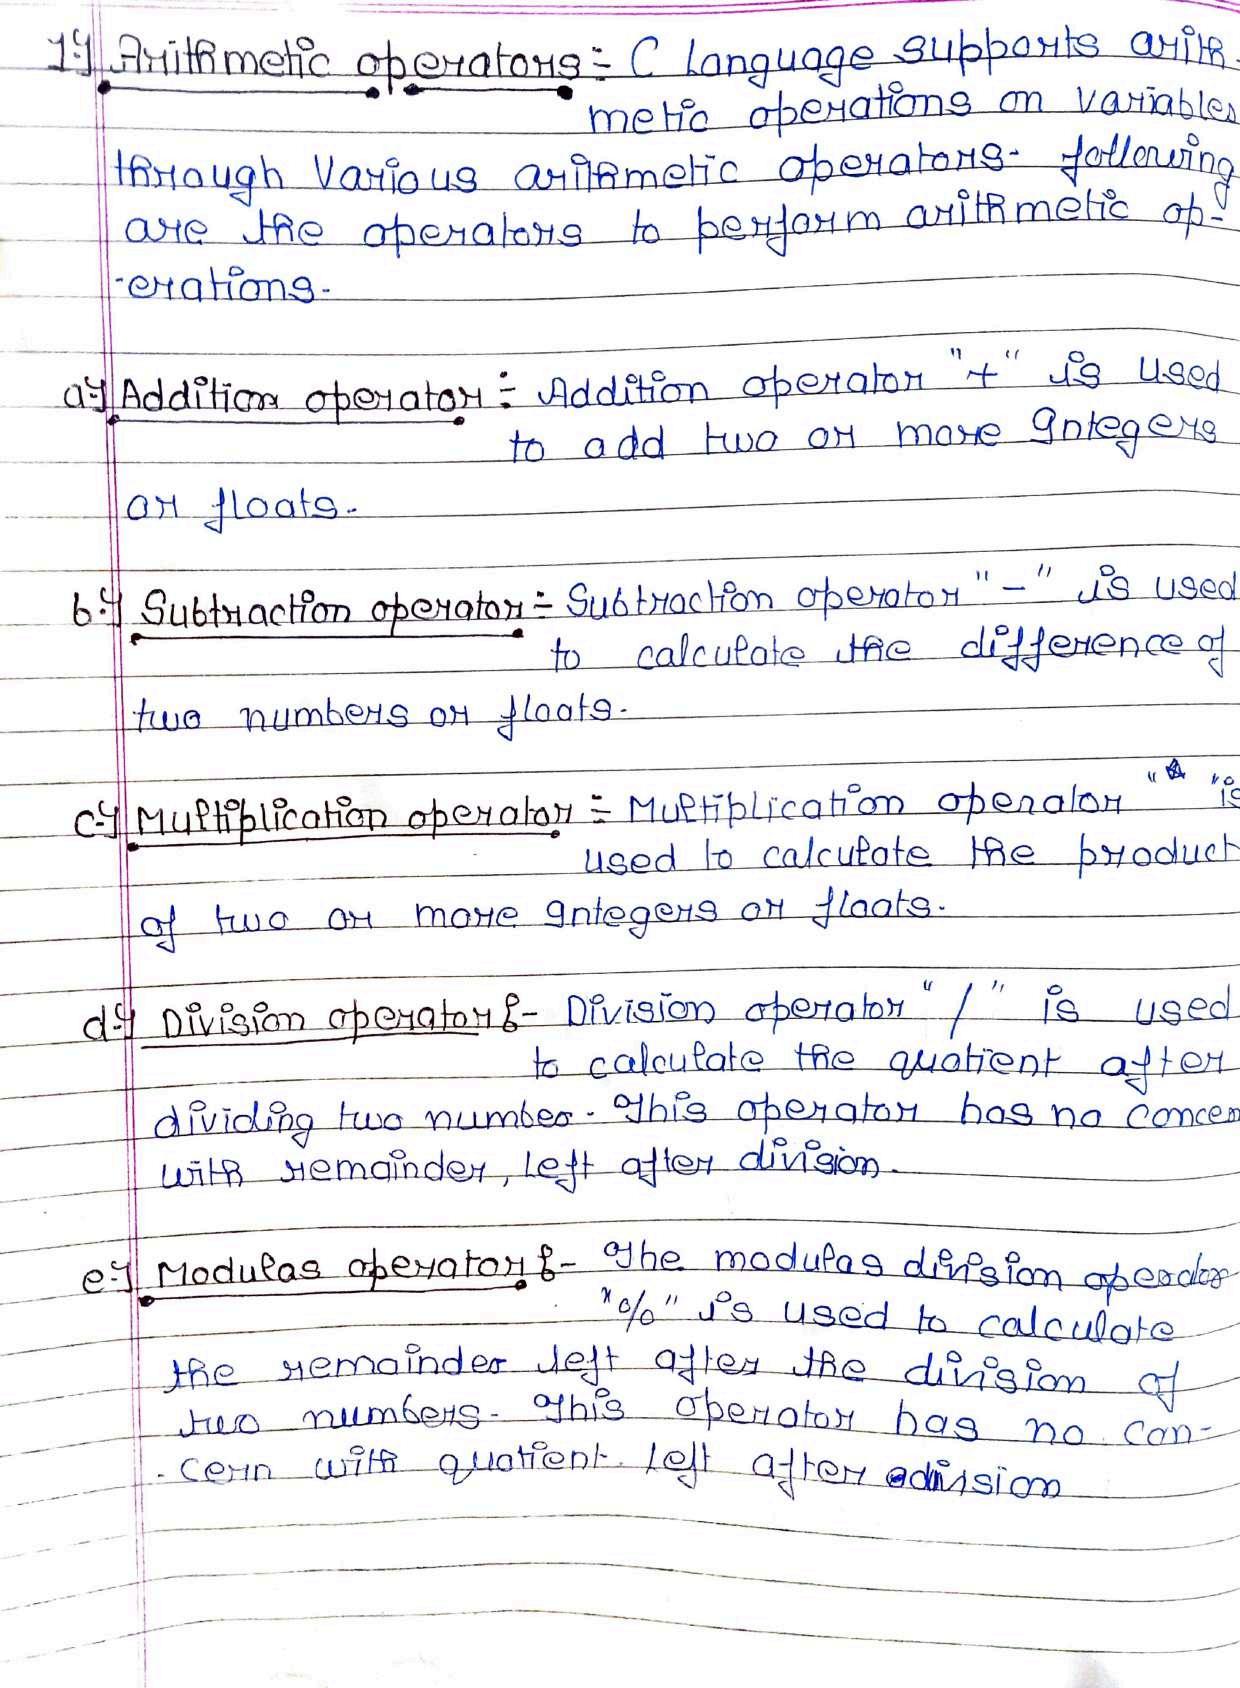 1:) Arithmetic operators:- C language supports arith-
metic operations on variables
through various arithmetic operators. following
are the operators to perform arithmetic op-
-erations.
a:) Addition operator :- Addition operator "+" is used
to add two or more Integers
or floats.
b:) Subtraction operator:- Subtraction operator "-" is used
to calculate the difference of
two numbers or floats.
c:) Multiplication operator :- Multiplication operator "*" is
used to calculate the product
of two or more Integers or floats.
d:) Division operator:- Division operator "/" is used
to calculate the quotient after
dividing two number. This operator has no concern
with remainder, left after division.
e:) Modulas operator:- The modulas division operator
"%" is used to calculate
the remainder left after the division of
two numbers. This operator has no con-
-cern with quotient left after division